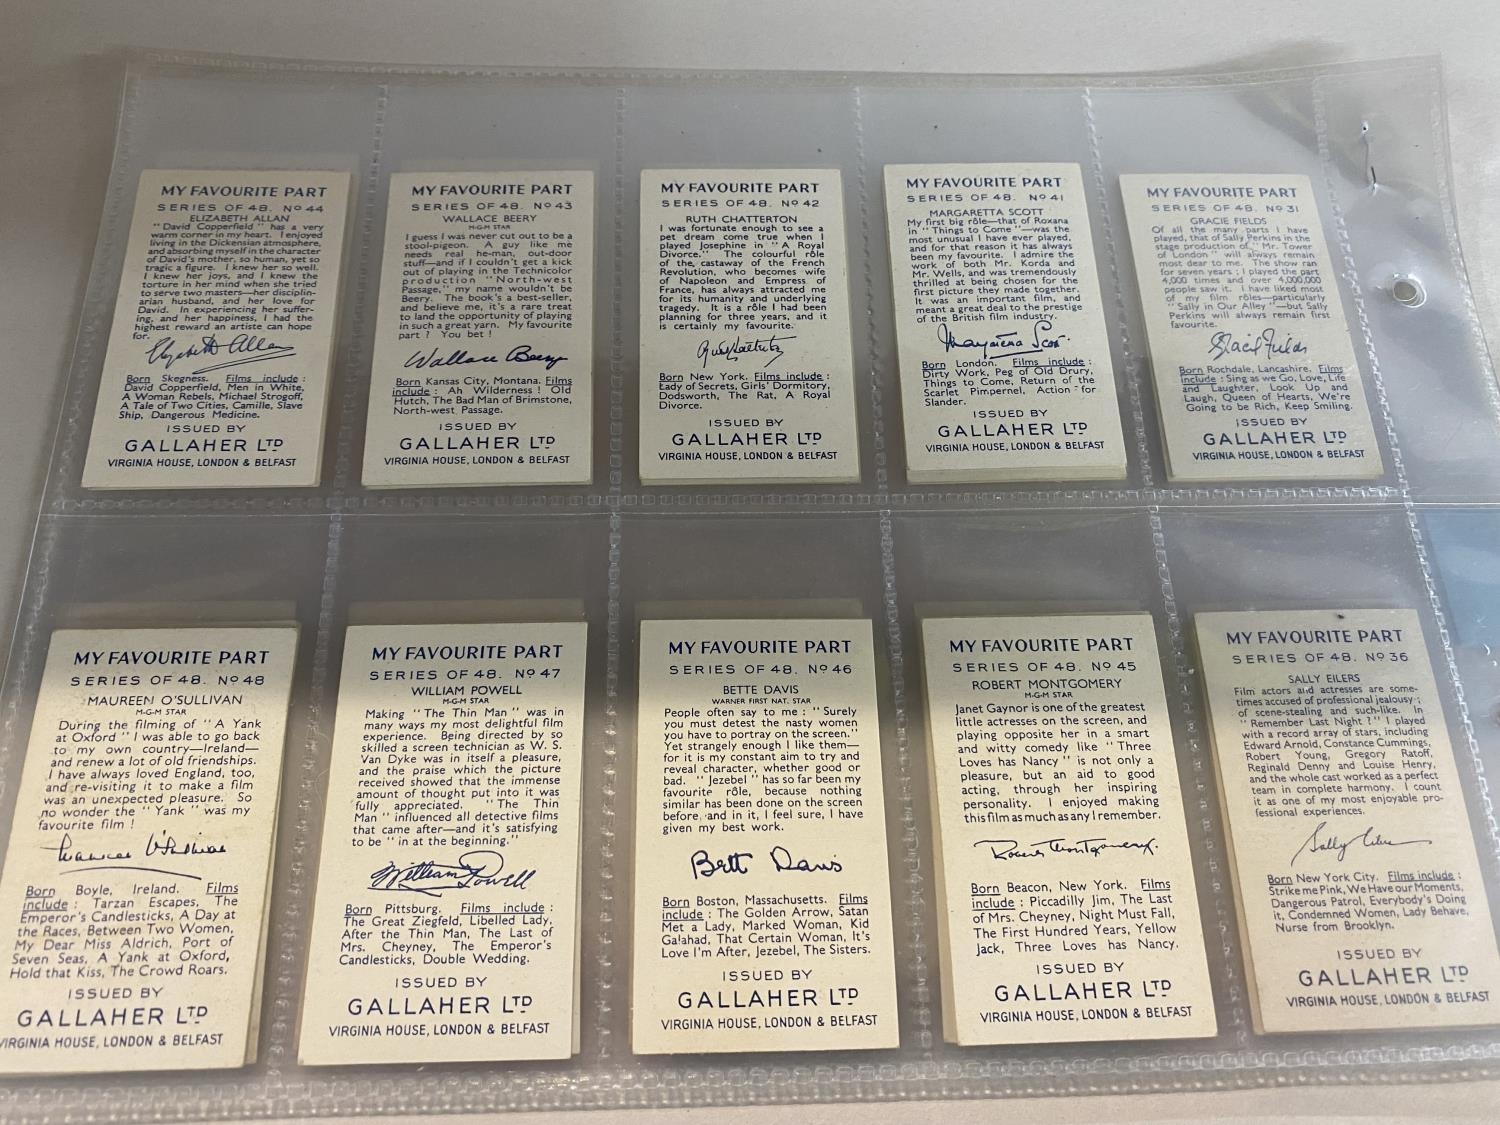 MY FAVOURITE PART
SERIES OF 48. Nº 44
ELIZABETH ALLAN
"David Copperfield" has a very
warm corner in my heart. I enjoyed
living in the Dickensian atmosphere,
and absorbing myself in the character
of David's mother, so human, yet so
tragic a figure. I knew her so well.
I knew her joys, and I knew the
torture in her mind when she tried
to serve two masters—her disciplin-
arian husband, and her love for
David. In experiencing her suffer-
ing, and her happiness, I had the
highest reward an artiste can hope
for.
Elizabeth Allan
Born Skegness. Films include :
David Copperfield, Men in White,
A Woman Rebels, Michael Strogoff,
A Tale of Two Cities, Camille, Slave
Ship, Dangerous Medicine.
ISSUED BY
GALLAHER LTD
VIRGINIA HOUSE, LONDON & BELFAST
MY FAVOURITE PART
SERIES OF 48. Nº 43
WALLACE BEERY
M·G·M STAR
I guess I was never cut out to be a
stool-pigeon. A guy like me
needs real he-man, out-door
stuff—and if I couldn't get a kick
out of playing in the Technicolor
production "North-west
Passage," my name wouldn't be
Beery. The book's a best-seller,
and believe me, it's a rare treat
to land the opportunity of playing
in such a great yarn. My favourite
part ? You bet !
Wallace Beery
Born Kansas City, Montana. Films
include : Ah Wilderness ! Old
Hutch, The Bad Man of Brimstone,
North-west Passage.
ISSUED BY
GALLAHER LTD
VIRGINIA HOUSE, LONDON & BELFAST
MY FAVOURITE PART
SERIES OF 48. Nº 42
RUTH CHATTERTON
I was fortunate enough to see a
pet dream come true when I
played Josephine in "A Royal
Divorce." The colourful rôle
of the castaway of the French
Revolution, who becomes wife
of Napoleon and Empress of
France, has always attracted me
for its humanity and underlying
tragedy. It is a rôle I had been
planning for three years, and it
is certainly my favourite.
Ruth Chatterton
Born New York. Films include :
Lady of Secrets, Girls' Dormitory,
Dodsworth, The Rat, A Royal
Divorce.
ISSUED BY
GALLAHER LTD
VIRGINIA HOUSE, LONDON & BELFAST
MY FAVOURITE PART
SERIES OF 48. Nº 41
MARGARETTA SCOTT
My first big rôle—that of Roxana
in "Things to Come"—was the
most unusual I have ever played,
and for that reason it has always
been my favourite. I admire the
work of both Mr. Korda and
Mr. Wells, and was tremendously
thrilled at being chosen for the
first picture they made together.
It was an important film, and
meant a great deal to the prestige
of the British film industry.
Margaretta Scott
Born London. Films include :
Dirty Work, Peg of Old Drury,
Things to Come, Return of the
Scarlet Pimpernel, Action for
Slander.
ISSUED BY
GALLAHER LTD
VIRGINIA HOUSE, LONDON & BELFAST
MY FAVOURITE PART
SERIES OF 48. Nº 31
GRACIE FIELDS
Of all the many parts I have
played, that of Sally Perkins in the
stage production of "Mr. Tower
of London" will always remain
most dear to me. The show ran
for seven years ; I played the part
4,000 times and over 4,000,000
people saw it. I have liked most
of my film rôles—particularly
"Sally in Our Alley"—but Sally
Perkins will always remain first
favourite.
Gracie Fields
Born Rochdale, Lancashire. Films
include : Sing as we Go, Love, Life
and Laughter, Look Up and
Laugh, Queen of Hearts, We're
Going to be Rich, Keep Smiling.
ISSUED BY
GALLAHER LTD
VIRGINIA HOUSE, LONDON & BELFAST
MY FAVOURITE PART
SERIES OF 48. Nº 48
MAUREEN O'SULLIVAN
M·G·M STAR
During the filming of "A Yank
at Oxford" I was able to go back
to my own country—Ireland—
and renew a lot of old friendships.
I have always loved England, too,
and re-visiting it to make a film
was an unexpected pleasure. So
no wonder the "Yank" was my
favourite film !
Maureen O'Sullivan
Born Boyle, Ireland. Films
include : Tarzan Escapes, The
Emperor's Candlesticks, A Day at
the Races, Between Two Women,
My Dear Miss Aldrich, Port of
Seven Seas, A Yank at Oxford,
Hold that Kiss, The Crowd Roars.
ISSUED BY
GALLAHER LTD
VIRGINIA HOUSE, LONDON & BELFAST
MY FAVOURITE PART
SERIES OF 48. Nº 47
WILLIAM POWELL
M·G·M STAR
Making "The Thin Man" was in
many ways my most delightful film
experience. Being directed by so
skilled a screen technician as W. S.
Van Dyke was in itself a pleasure,
and the praise which the picture
received showed that the immense
amount of thought put into it was
fully appreciated. "The Thin
Man" influenced all detective films
that came after—and it's satisfying
to be "in at the beginning."
William Powell
Born Pittsburg. Films include :
The Great Ziegfeld, Libelled Lady,
After the Thin Man, The Last of
Mrs. Cheyney, The Emperor's
Candlesticks, Double Wedding.
ISSUED BY
GALLAHER LTD
VIRGINIA HOUSE, LONDON & BELFAST
MY FAVOURITE PART
SERIES OF 48. Nº 46
BETTE DAVIS
WARNER FIRST NAT. STAR
People often say to me : "Surely
you must detest the nasty women
you have to portray on the screen."
Yet strangely enough I like them—
for it is my constant aim to try and
reveal character, whether good or
bad. "Jezebel" has so far been my
favourite rôle, because nothing
similar has been done on the screen
before, and in it, I feel sure, I have
given my best work.
Bette Davis
Born Boston, Massachusetts. Films
include : The Golden Arrow, Satan
Met a Lady, Marked Woman, Kid
Galahad, That Certain Woman, It's
Love I'm After, Jezebel, The Sisters.
ISSUED BY
GALLAHER LTD
VIRGINIA HOUSE, LONDON & BELFAST
MY FAVOURITE PART
SERIES OF 48. Nº 45
ROBERT MONTGOMERY
M·G·M STAR
Janet Gaynor is one of the greatest
little actresses on the screen, and
playing opposite her in a smart
and witty comedy like "Three
Loves has Nancy" is not only a
pleasure, but an aid to good
acting, through her inspiring
personality. I enjoyed making
this film as much as any I remember.
Robert Montgomery.
Born Beacon, New York. Films
include : Piccadilly Jim, The Last
of Mrs. Cheyney, Night Must Fall,
The First Hundred Years, Yellow
Jack, Three Loves has Nancy.
ISSUED BY
GALLAHER LTD
VIRGINIA HOUSE, LONDON & BELFAST
MY FAVOURITE PART
SERIES OF 48. Nº 36
SALLY EILERS
Film actors and actresses are some-
times accused of professional jealousy ;
of scene-stealing and such-like. In
"Remember Last Night ?" I played
with a record array of stars, including
Edward Arnold, Constance Cummings,
Robert Young, Gregory Ratoff,
Reginald Denny and Louise Henry,
and the whole cast worked as a perfect
team in complete harmony. I count
it as one of my most enjoyable pro-
fessional experiences.
Sally Eilers
Born New York City. Films include :
Strike me Pink, We Have our Moments,
Dangerous Patrol, Everybody's Doing
it, Condemned Women, Lady Behave,
Nurse from Brooklyn.
ISSUED BY
GALLAHER LTD
VIRGINIA HOUSE, LONDON & BELFAST